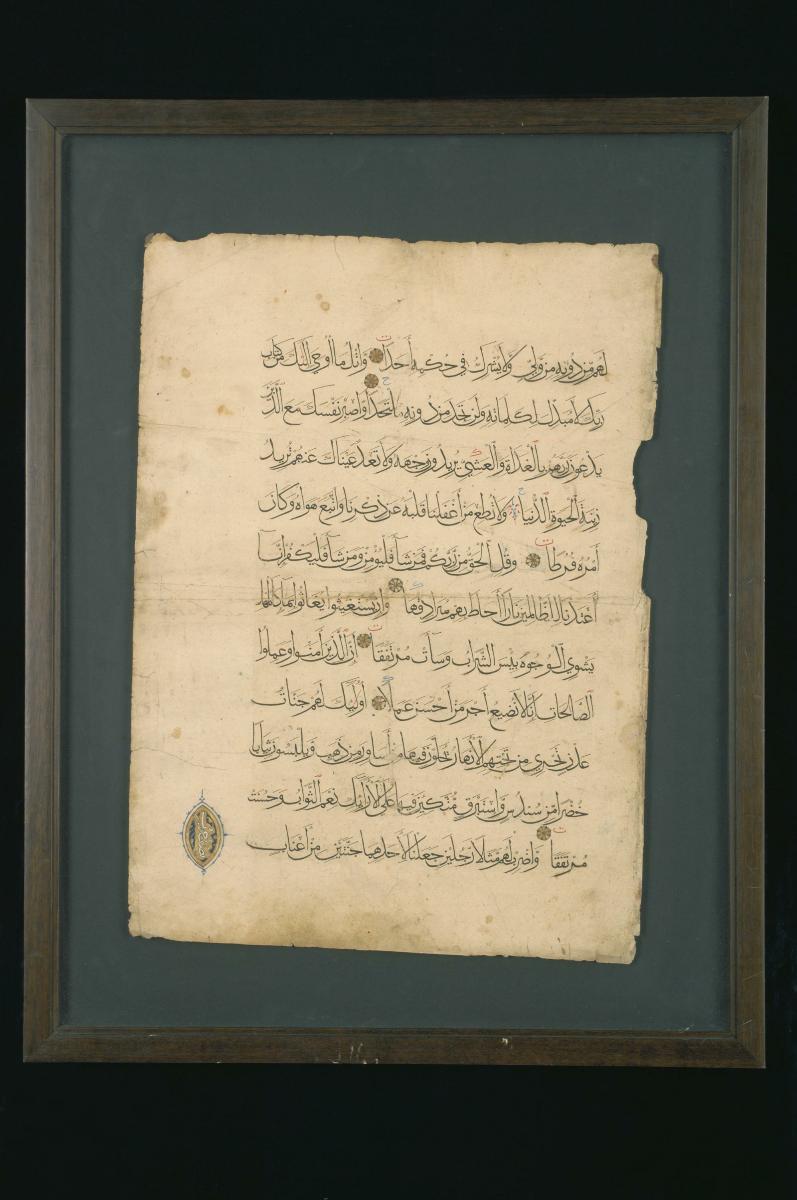 لهم من دونه من ولي ولا يشرك في حكمه أحدا واتل ما أوحي إليك من كتاب
ربك لا مبدل لكلماته ولن تجد من دونه ملتحدا واصبر نفسك مع الذين
يدعون ربهم بالغداة والعشي يريدون وجهه ولا تعد عيناك عنهم تريد
زينة الحيوة الدنيا ولا تطع من أغفلنا قلبه عن ذكرنا واتبع هواه وكان
أمره فرطا وقل الحق من ربكم فمن شآء فليؤمن ومن شآء فليكفر إنآ
أعتدنا للظالمين نارا أحاط بهم سرادقها وإن يستغيثوا يغاثوا بمآء كالمهل
يشوي الوجوه بئس الشراب وسآءت مرتفقا إن الذين آمنوا وعملوا
الصالحات إنا لا نضيع أجر من أحسن عملا أولئك لهم جنات
عدن تجري من تحتهم الأنهار يحلون فيها من أساور من ذهب ويلبسون ثيابا
خضرا من سندس وإستبرق متكئين فيها على الأرائك نعم الثواب وحسنت
مرتفقا واضرب لهم مثلا رجلين جعلنا لأحدهما جنتين من أعناب